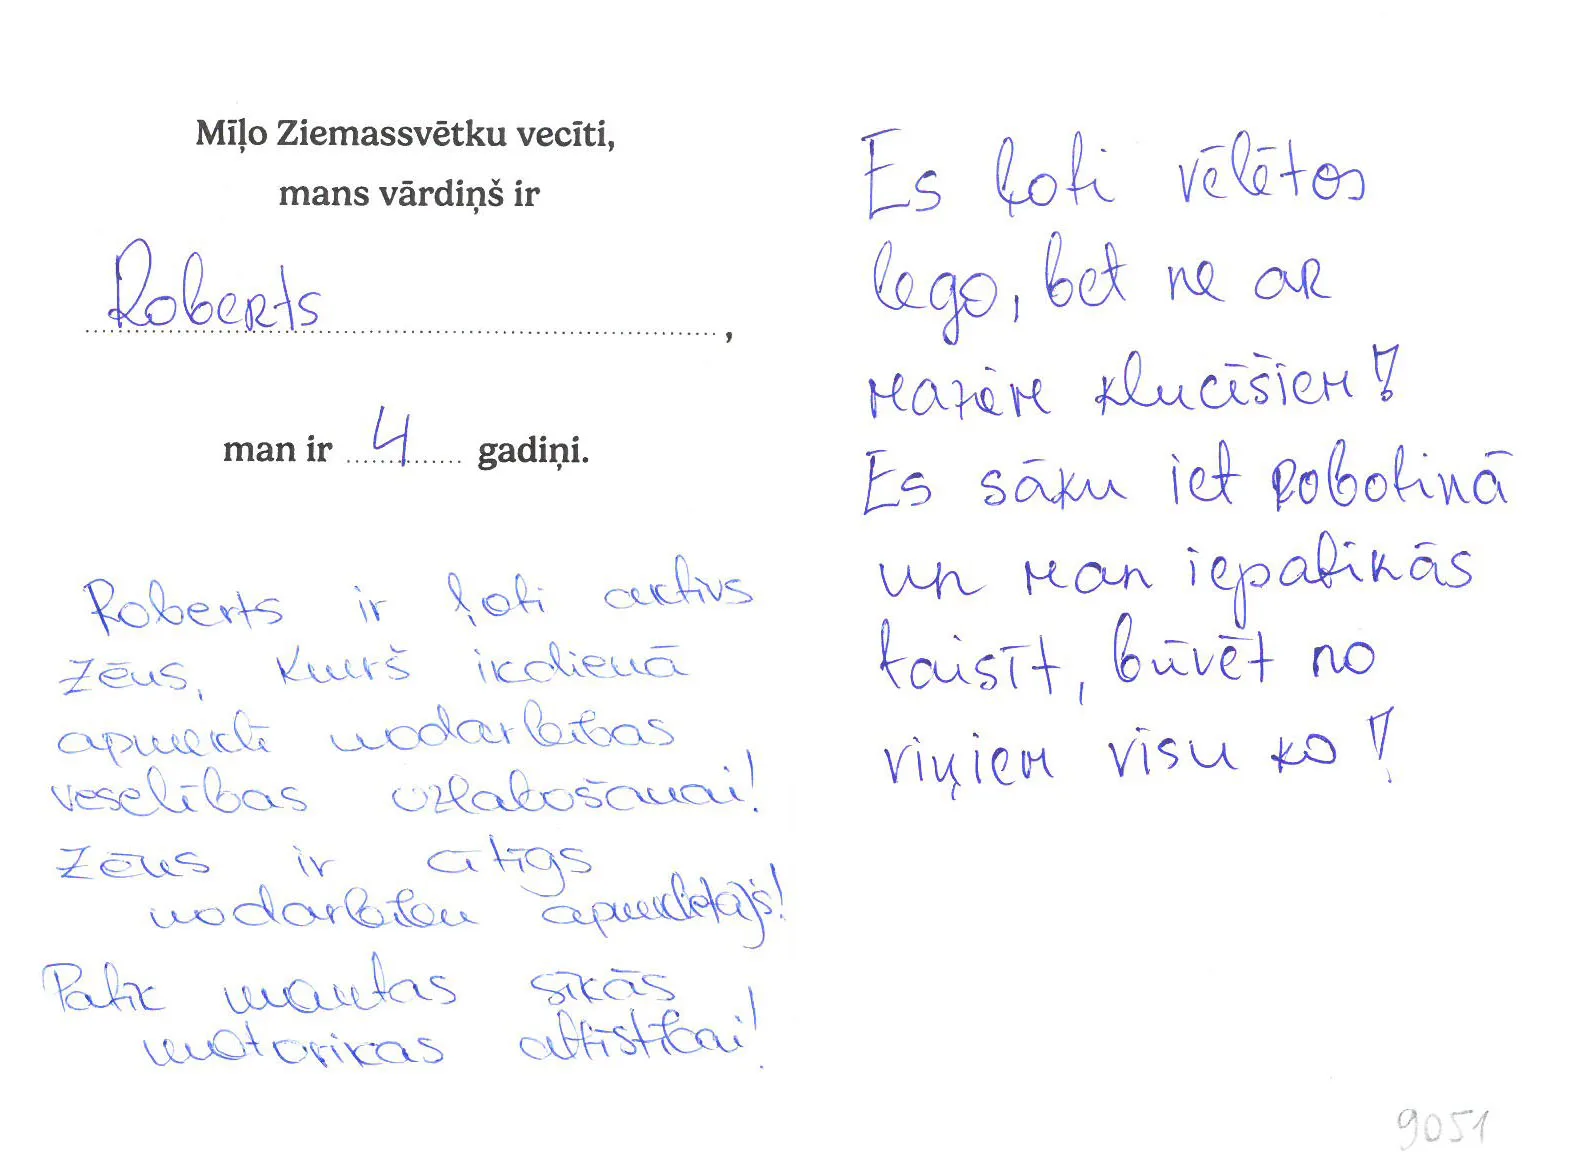 Mīļo Ziemassvētku vecīti,
mans vārdiņš ir
Roberts,
man ir 4 gadiņi.
Roberts ir ļoti aktīvs
zēns, kurš ikdienā
apmeklē nodarbības
veselības uzlabošanai!
Zēns ir cītīgs
nodarbību apmeklētājs!
Patīk mantas sīkās
motorikas attīstībai!
Es ļoti vēlētos
lego, bet ne ar
maziem klucīšiem!
Es sāku iet Robotiņā
un man iepatikās
taisīt, būvēt no
viņiem visu ko!
9051